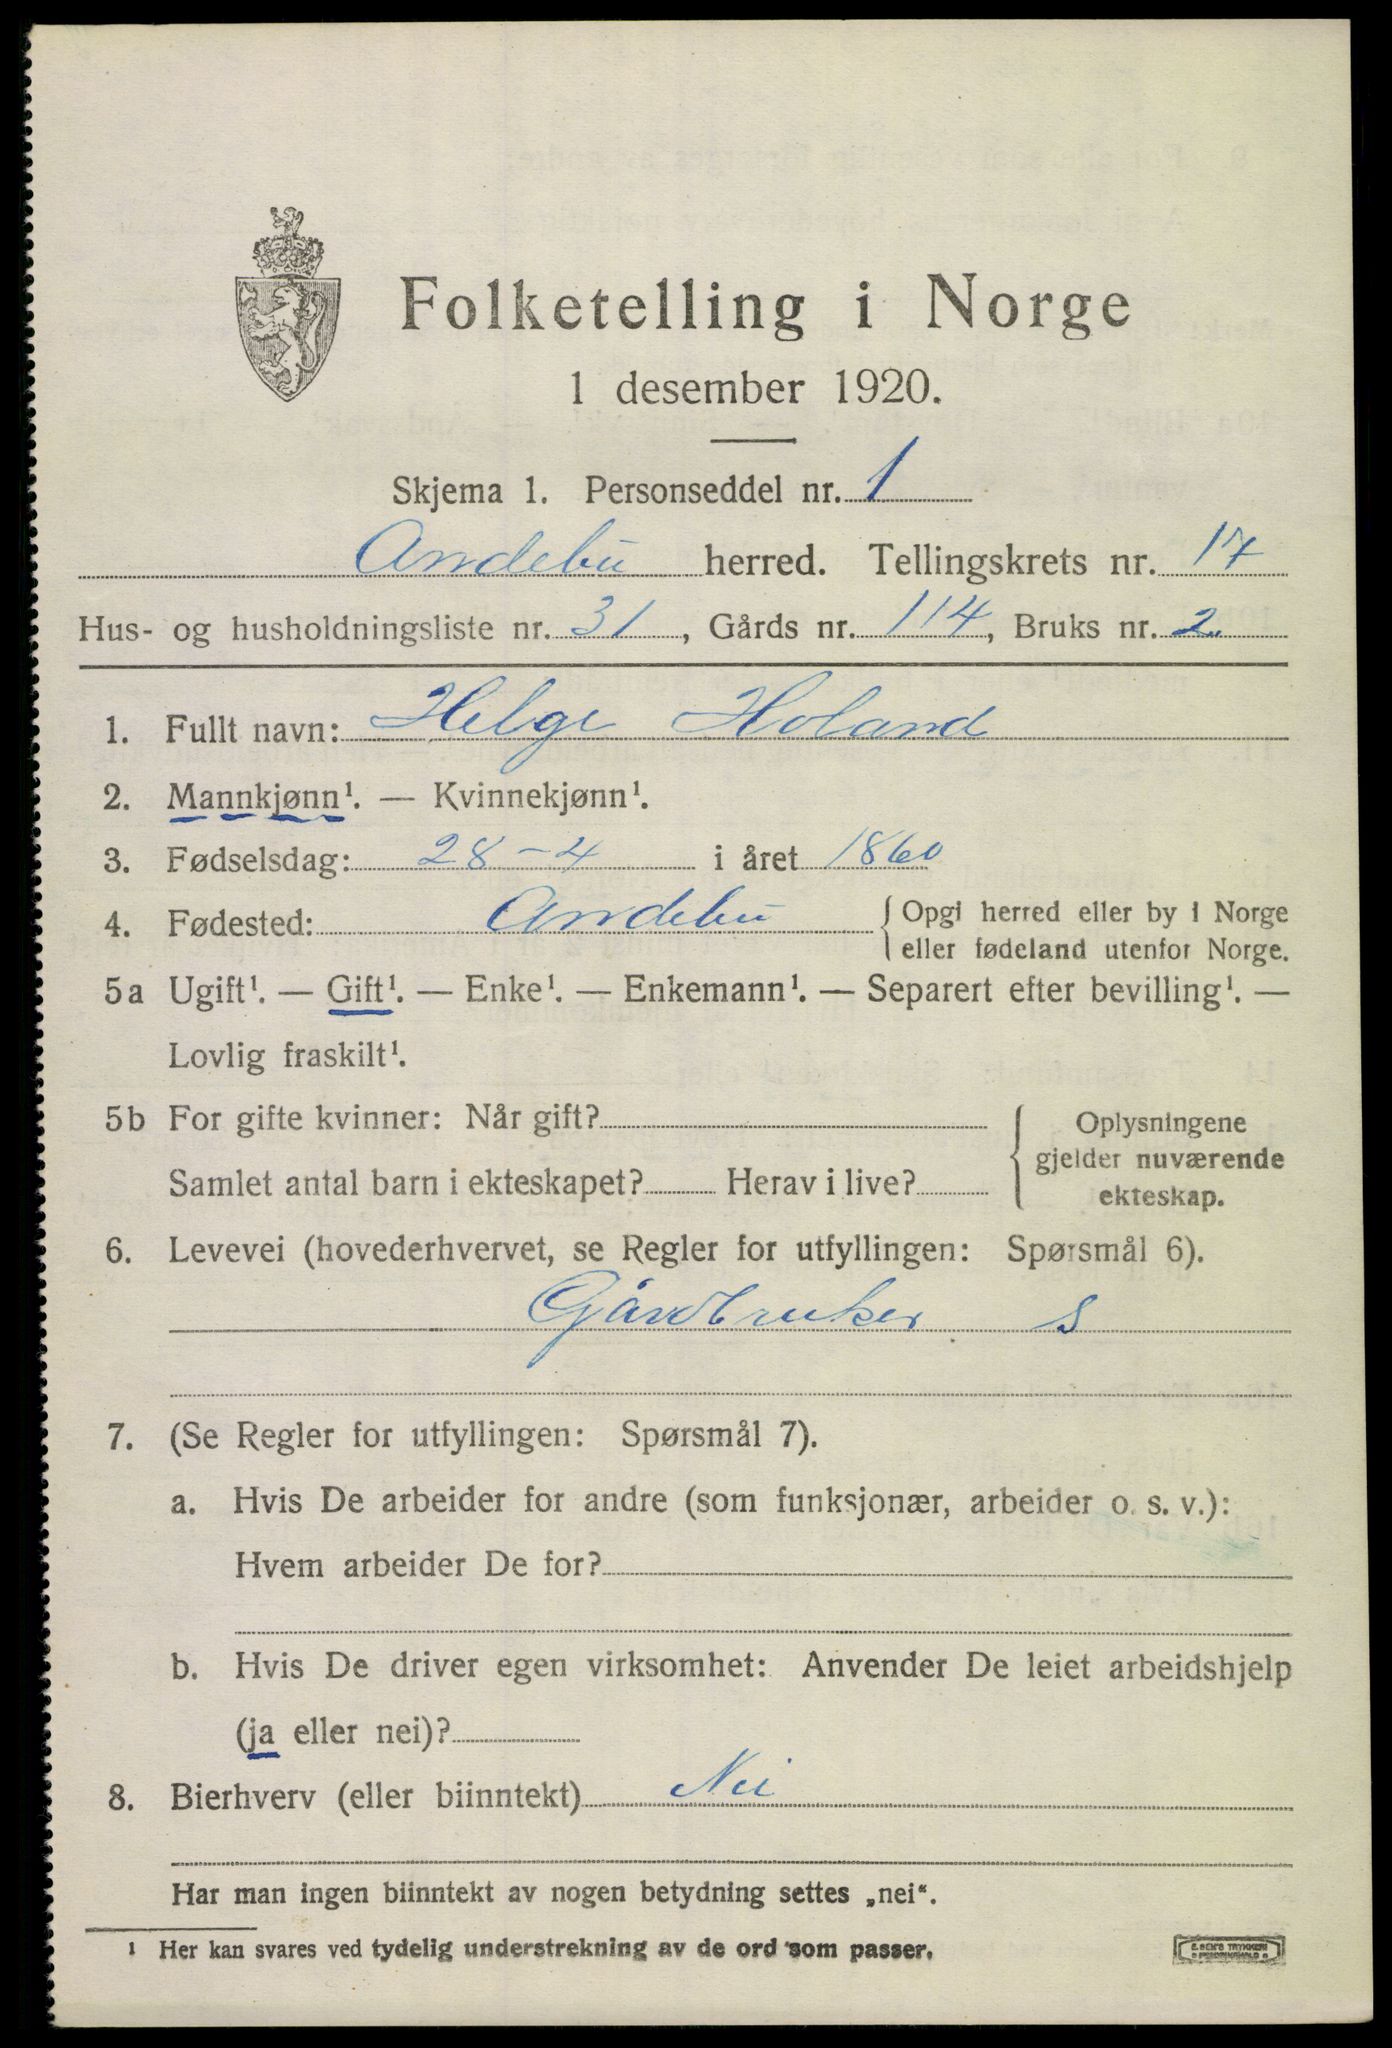 Folketelling i Norge
1 desember 1920.
Skjema 1. Personseddel nr. 1
Andebu herred. Tellingskrets nr. 17
Hus- og husholdningsliste nr. 31, Gårds nr. 114, Bruks nr. 2.
1. Fullt navn: Helge Holand
2. Mannkjønn¹. — Kvinnekjønn¹.
3. Fødselsdag: 28-4 i året 1860
4. Fødested: Andebu { Opgi herred eller by i Norge
eller fødeland utenfor Norge.
5a Ugift¹. — Gift¹. — Enke¹. — Enkemann¹. — Separert efter bevilling¹. —
Lovlig fraskilt¹.
5b For gifte kvinner: Når gift?
Samlet antal barn i ekteskapet? Herav i live?
{ Oplysningene
gjelder nuværende
ekteskap.
6. Levevei (hovederhvervet, se Regler for utfyllingen: Spørsmål 6).
Gårdbruker s
7. (Se Regler for utfyllingen: Spørsmål 7).
a. Hvis De arbeider for andre (som funksjonær, arbeider o. s. v.):
Hvem arbeider De for?
b. Hvis De driver egen virksomhet: Anvender De leiet arbeidshjelp
(ja eller nei)?
8. Bierhverv (eller biinntekt) Nei
Har man ingen biinntekt av nogen betydning settes „nei“.
¹ Her kan svares ved tydelig understrekning av de ord som passer.